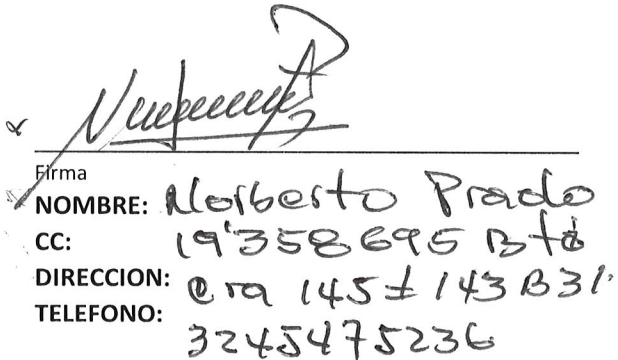 Firma
NOMBRE: Norberto Prado
CC: 19'358695 Bta
DIRECCION: Cra 145 # 143 B 31
TELEFONO: 3245475236